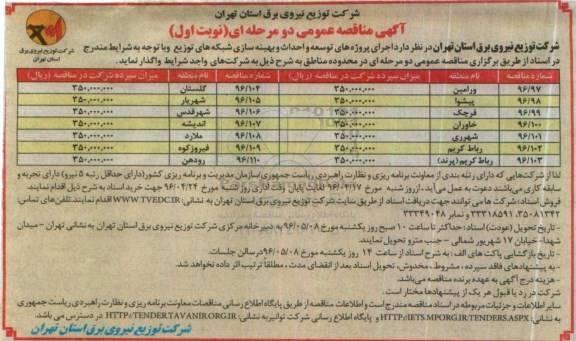 شرکت توزیع نیروی برق استان تهران
آگهی مناقصه عمومی دو مرحله ای (نوبت اول)
شرکت توزیع نیروی برق
استان تهران
شرکت توزیع نیروی برق استان تهران در نظر دارد اجرای پروژه های توسعه و احداث و بهینه سازی شبکه های توزیع و با توجه به شرایط مندرج
در اسناد از طریق برگزاری مناقصه عمومی دو مرحله ای در محدوده مناطق به شرح ذیل به شرکت‌های واجد شرایط واگذار نماید.
شماره مناقصه نام منطقه میزان سپرده شرکت در مناقصه (ریال) شماره مناقصه نام منطقه میزان سپرده شرکت در مناقصه (ریال)
۹۶/۹۷ ورامین ۳۵۰,۰۰۰,۰۰۰ ۹۶/۱۰۴ گلستان ۳۵۰,۰۰۰,۰۰۰
۹۶/۹۸ پیشوا ۳۵۰,۰۰۰,۰۰۰ ۹۶/۱۰۵ شهریار ۳۵۰,۰۰۰,۰۰۰
۹۶/۹۹ قرچک ۳۵۰,۰۰۰,۰۰۰ ۹۶/۱۰۶ شهرقدس ۳۵۰,۰۰۰,۰۰۰
۹۶/۱۰۰ خاوران ۳۵۰,۰۰۰,۰۰۰ ۹۶/۱۰۷ اندیشه ۳۵۰,۰۰۰,۰۰۰
۹۶/۱۰۱ شهرری ۳۵۰,۰۰۰,۰۰۰ ۹۶/۱۰۸ ملارد ۳۵۰,۰۰۰,۰۰۰
۹۶/۱۰۲ رباط کریم ۳۵۰,۰۰۰,۰۰۰ ۹۶/۱۰۹ فیروزکوه ۳۵۰,۰۰۰,۰۰۰
۹۶/۱۰۳ رباط کریم(پرند) ۳۵۰,۰۰۰,۰۰۰ ۹۶/۱۱۰ رودهن ۳۵۰,۰۰۰,۰۰۰
لذا از شرکت‌هایی که دارای رتبه بندی از معاونت برنامه ریزی و نظارت راهبردی ریاست جمهوری/سازمان مدیریت و برنامه ریزی کشور(دارای حداقل رتبه ۵ نیرو) دارای تجربه و
سابقه کاری می‌باشند دعوت به عمل می‌آید ، از روز شنبه مورخ ۹۶/۰۴/۱۷ لغایت پایان وقت اداری روز شنبه مورخ ۹۶/۰۴/۲۴ جهت خرید اسناد به شرح ذیل اقدام نمایند.
فروش اسناد: شرکت ها می توانند جهت دریافت اسناد از طریق سایت شرکت توزیع نیروی برق استان تهران به نشانی: WWW.TVEDC.IR اقدام نمایند. تلفن های تماس:
۳۵۰۸۱۳۴۲، ۳۳۳۱۸۵۹۱ و نمابر ۳۳۳۴۹۰۴۸
- تاریخ تحویل (عودت) اسناد: حداکثر تا ساعت ۱۰ صبح روز یکشنبه مورخ ۹۶/۰۵/۰۸ به دبیرخانه مرکزی شرکت توزیع نیروی برق استان تهران به نشانی تهران - میدان
شهدا- خیابان ۱۷ شهریور شمالی - جنب مترو تحویل نمایند.
- تاریخ بازگشایی پاکت های الف : به شرح اسناد از ساعت ۱۴ روز یکشنبه مورخ ۹۶/۰۵/۰۸ در سالن جلسات.
- به پیشنهادهای فاقد سپرده ، مشروط ، مخدوش، تحویل اسناد بعد از انقضای مدت ، مطلقا ترتیب اثر داده نخواهد شد.
- هزینه درج آگهی به عهده برنده مناقصه می‌باشد.
شرکت در رد یا قبول هر یک از پیشنهادها مختار است .
سایر اطلاعات و جزئیات مربوطه در اسناد مناقصه مندرج است و اطلاعات مناقصه از طریق پایگاه اطلاع رسانی مناقصات معاونت برنامه ریزی و نظارت راهبردی ریاست جمهوری
به نشانی: HTTP://IETS.MPORG.IR/TENDERS.ASPX و پایگاه اطلاع رسانی شرکت توانیر به نشانی: HTTP://TENDER.TAVANIR.ORG.IR در دسترس می باشد.
شرکت توزیع نیروی برق استان تهران